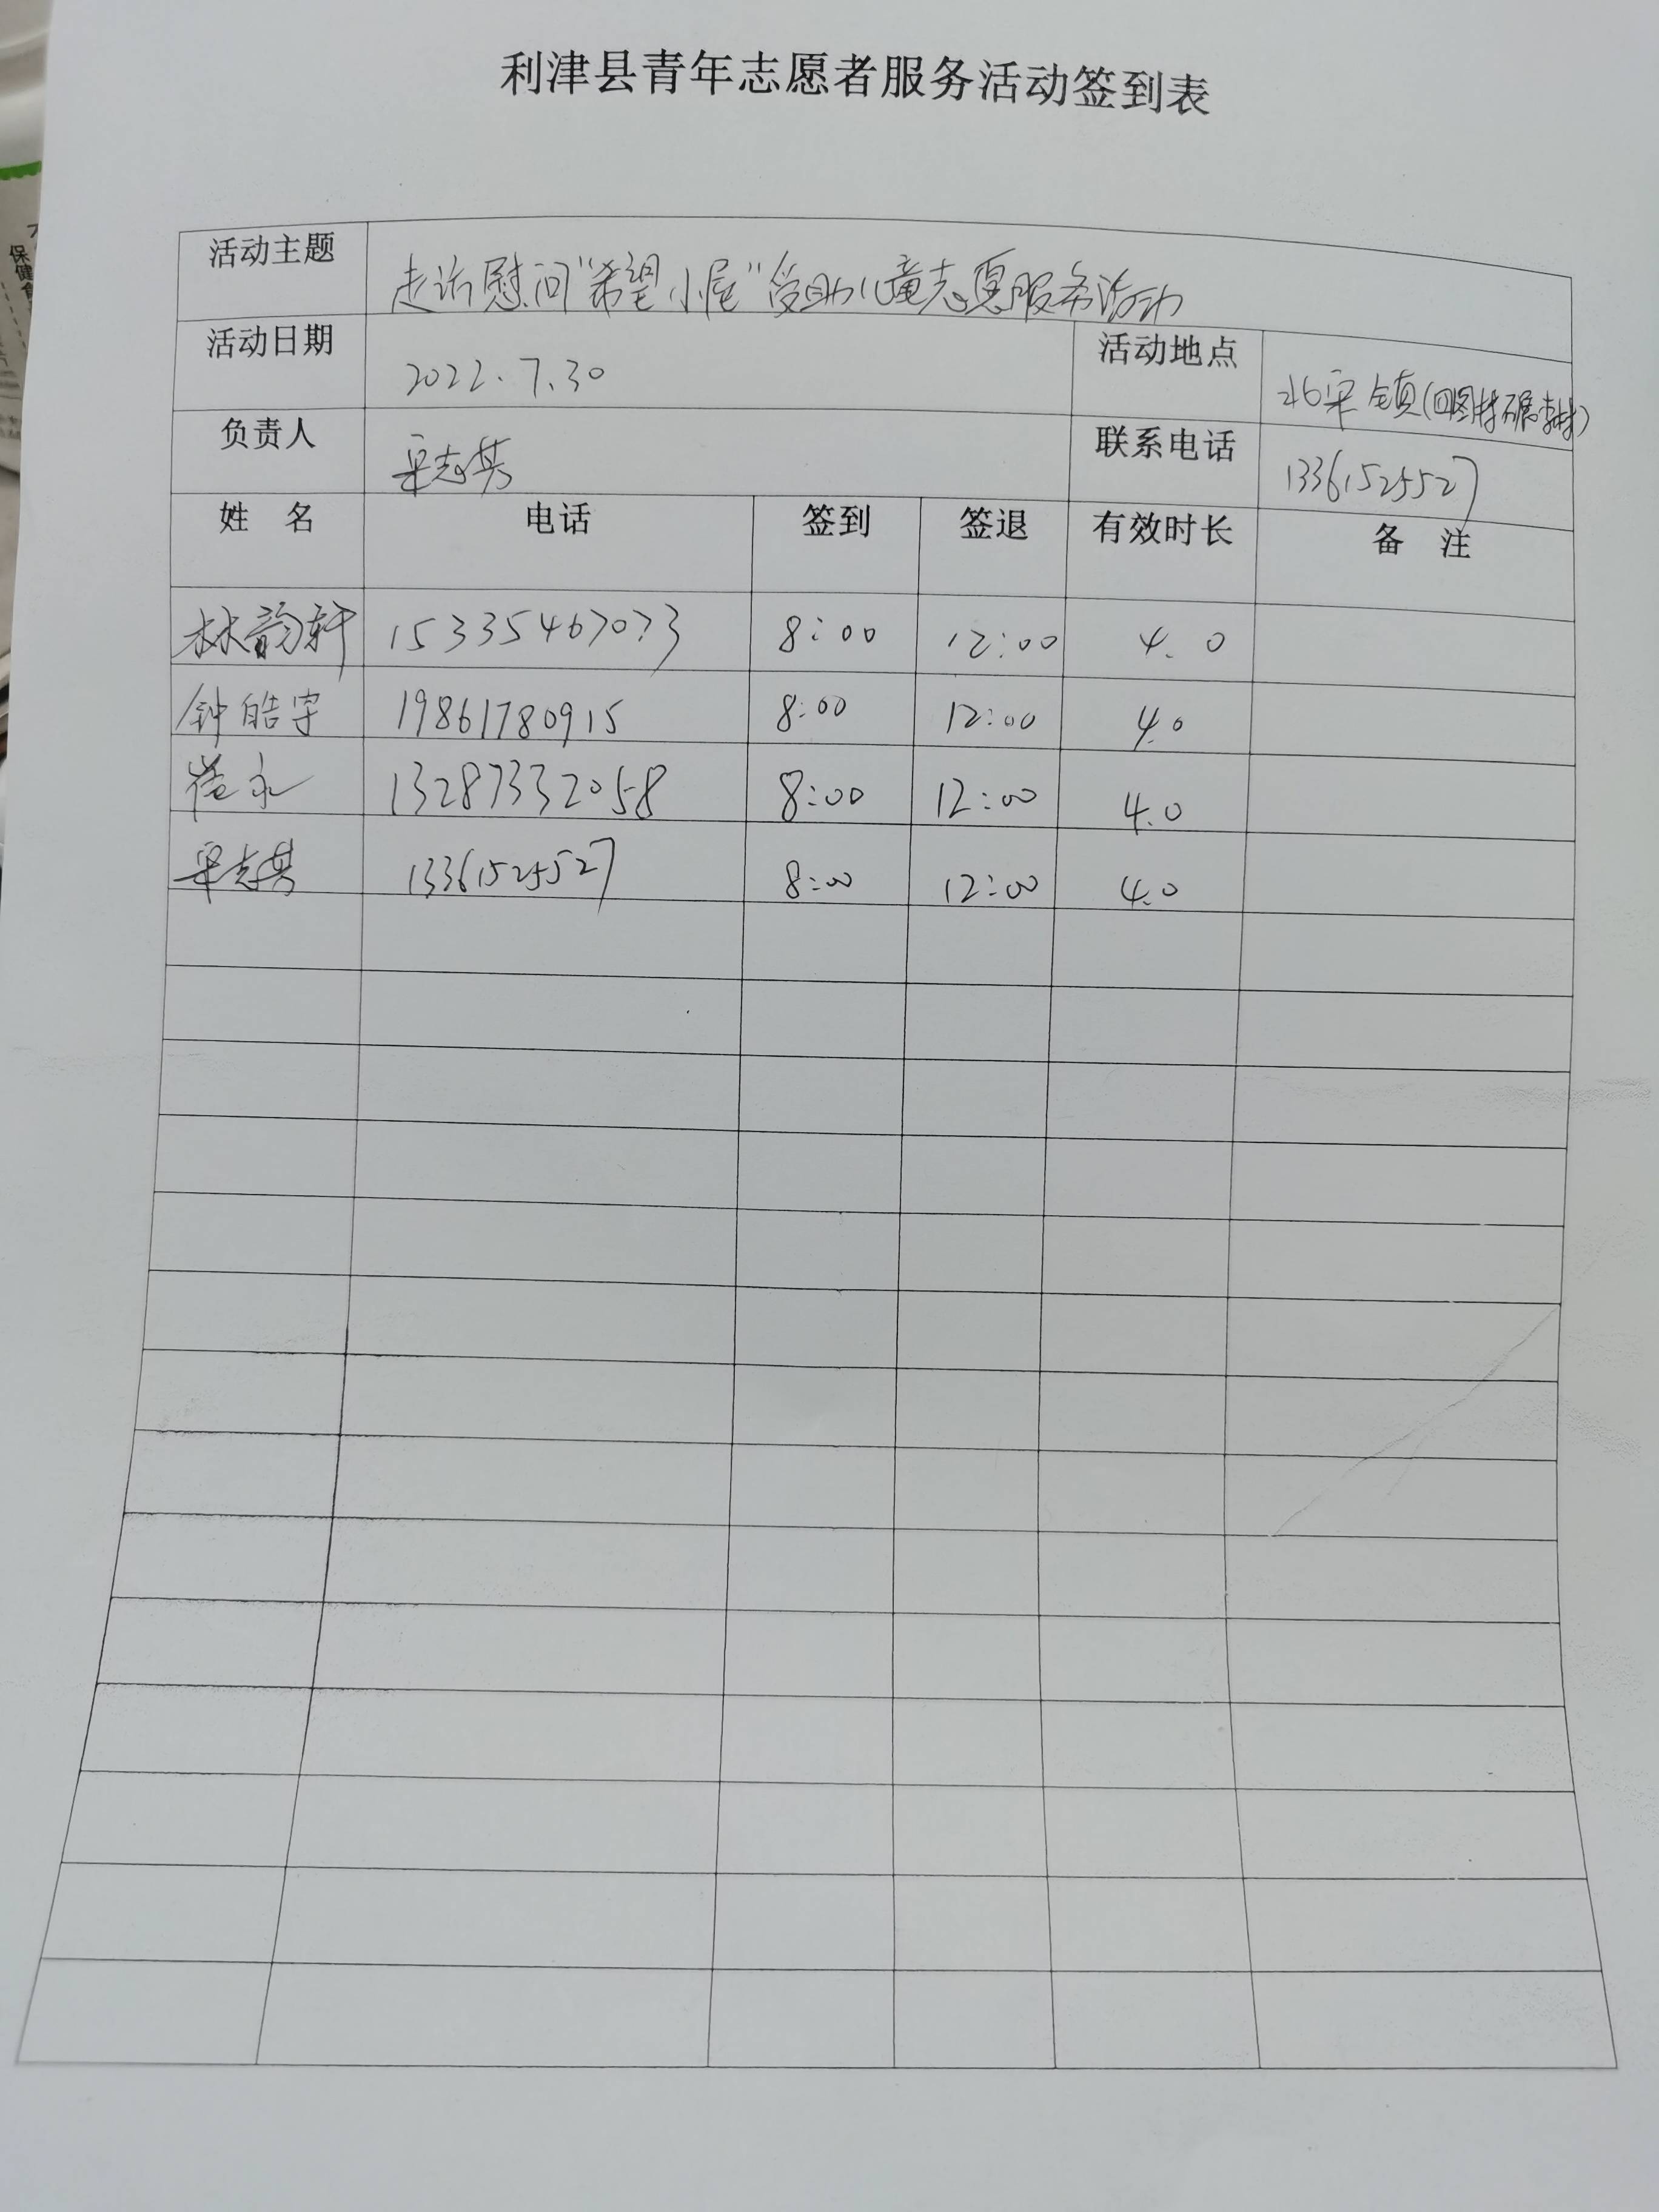 利津县青年志愿者服务活动签到表
活动主题 走访慰问"希望小屋"受助儿童志愿服务活动
活动日期 2022.7.30 活动地点 北宋镇
负责人 志其 联系电话 13361525527
姓 名 电话 签到 签退 有效时长 备 注
林韵轩 15335467073 8:00 12:00 4.0
钟皓宇 19861780915 8:00 12:00 4.0
崔永 13287332058 8:00 12:00 4.0
志其 13361525527 8:00 12:00 4.0
保健食